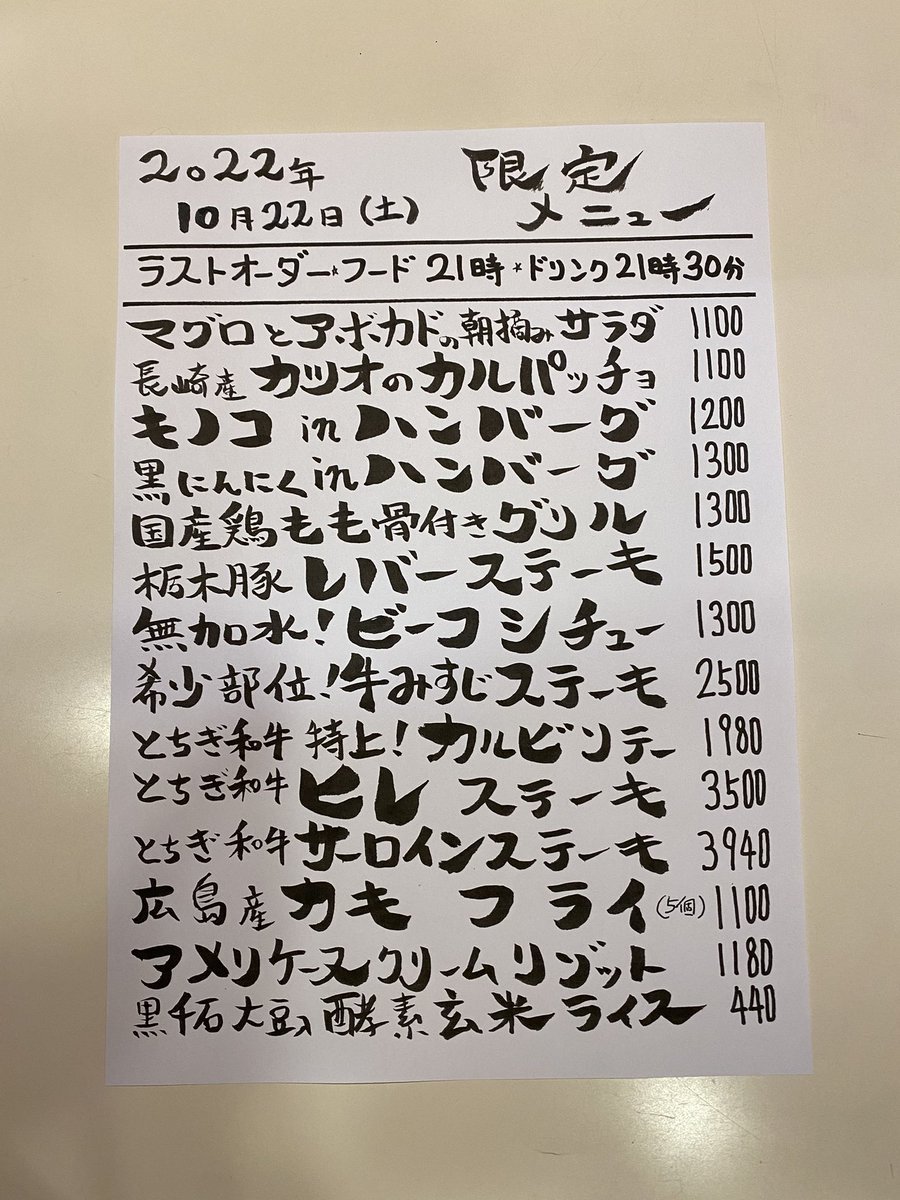 2022年 限定
10月22日(土) メニュー
ラストオーダー★フード 21時 ★ドリンク21時30分
マグロとアボカドの朝摘みサラダ 1100
長崎産 カツオのカルパッチョ 1100
キノコ in ハンバーグ 1200
黒にんにく in ハンバーグ 1300
国産鶏もも骨付きグリル 1300
栃木豚 レバーステーキ 1500
無加水!ビーフシチュー 1300
希少部位!牛みすじステーキ 2500
とちぎ和牛 特上!カルビソテー 1980
とちぎ和牛 ヒレ ステーキ 3500
とちぎ和牛 サーロインステーキ 3940
広島産 カキ フライ(5個) 1100
アメリケーヌクリームリゾット 1180
黒千石大豆入酵素玄米ライス 440